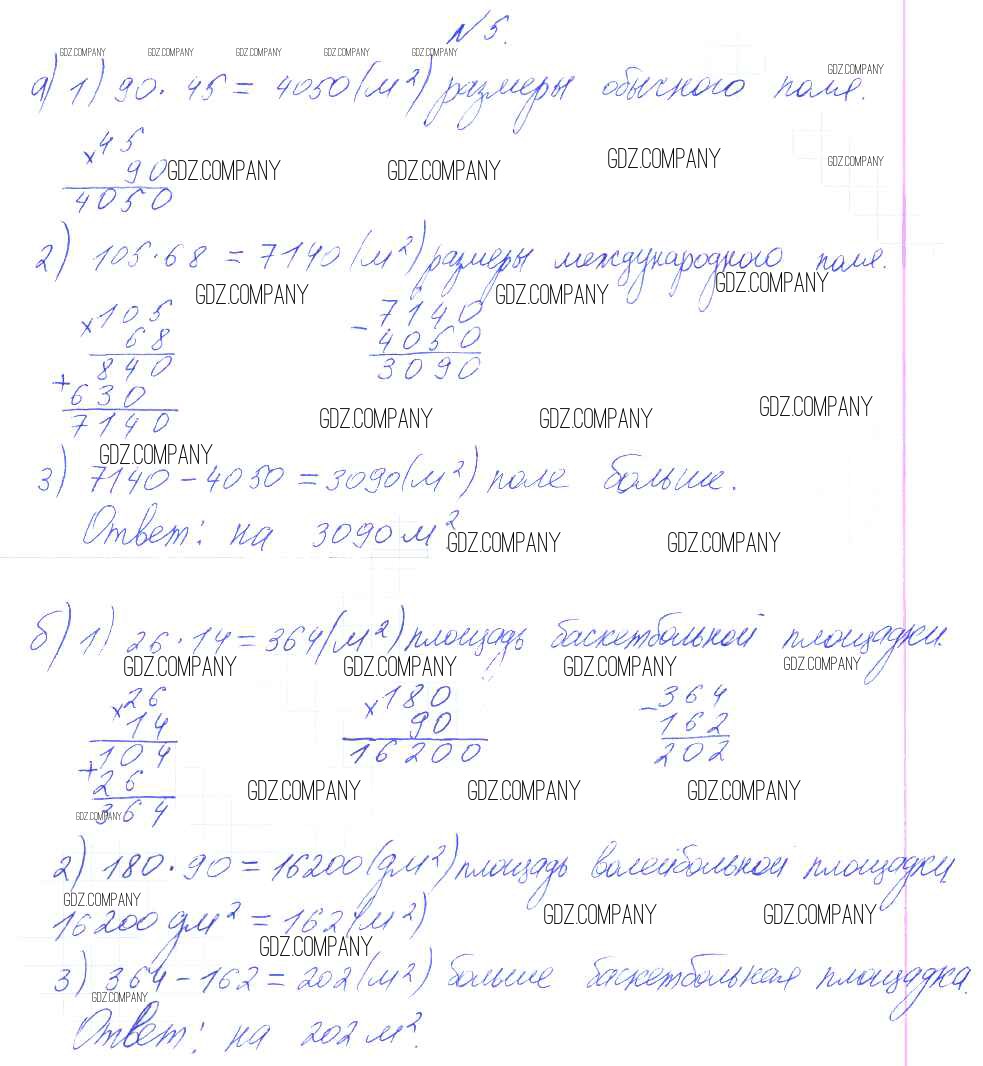 N 5.
GDZ.COMPANY GDZ.COMPANY GDZ.COMPANY GDZ.COMPANY GDZ.COMPANY
GDZ.COMPANY
а) 1) 90 · 45 = 4050 (м²) размеры обычного поля.
× 45
90
4050
GDZ.COMPANY GDZ.COMPANY GDZ.COMPANY GDZ.COMPANY
2) 105 · 68 = 7140 (м²) размеры международного поля.
GDZ.COMPANY GDZ.COMPANY GDZ.COMPANY
× 105
68
840
+ 630
7140
− 7140
4050
3090
GDZ.COMPANY GDZ.COMPANY GDZ.COMPANY
GDZ.COMPANY
3) 7140 − 4050 = 3090 (м²) поле больше.
Ответ: на 3090 м²
GDZ.COMPANY GDZ.COMPANY
б) 1) 26 · 14 = 364 (м²) площадь баскетбольной площадки.
GDZ.COMPANY GDZ.COMPANY GDZ.COMPANY GDZ.COMPANY
× 26
14
104
+ 26
364
× 180
90
16200
− 364
162
202
GDZ.COMPANY GDZ.COMPANY GDZ.COMPANY
GDZ.COMPANY
2) 180 · 90 = 16200 (дм²) площадь волейбольной площадки
GDZ.COMPANY GDZ.COMPANY GDZ.COMPANY
16200 дм² = 162 (м²)
GDZ.COMPANY
3) 364 − 162 = 202 (м²) больше баскетбольная площадка.
GDZ.COMPANY
Ответ: на 202 м².